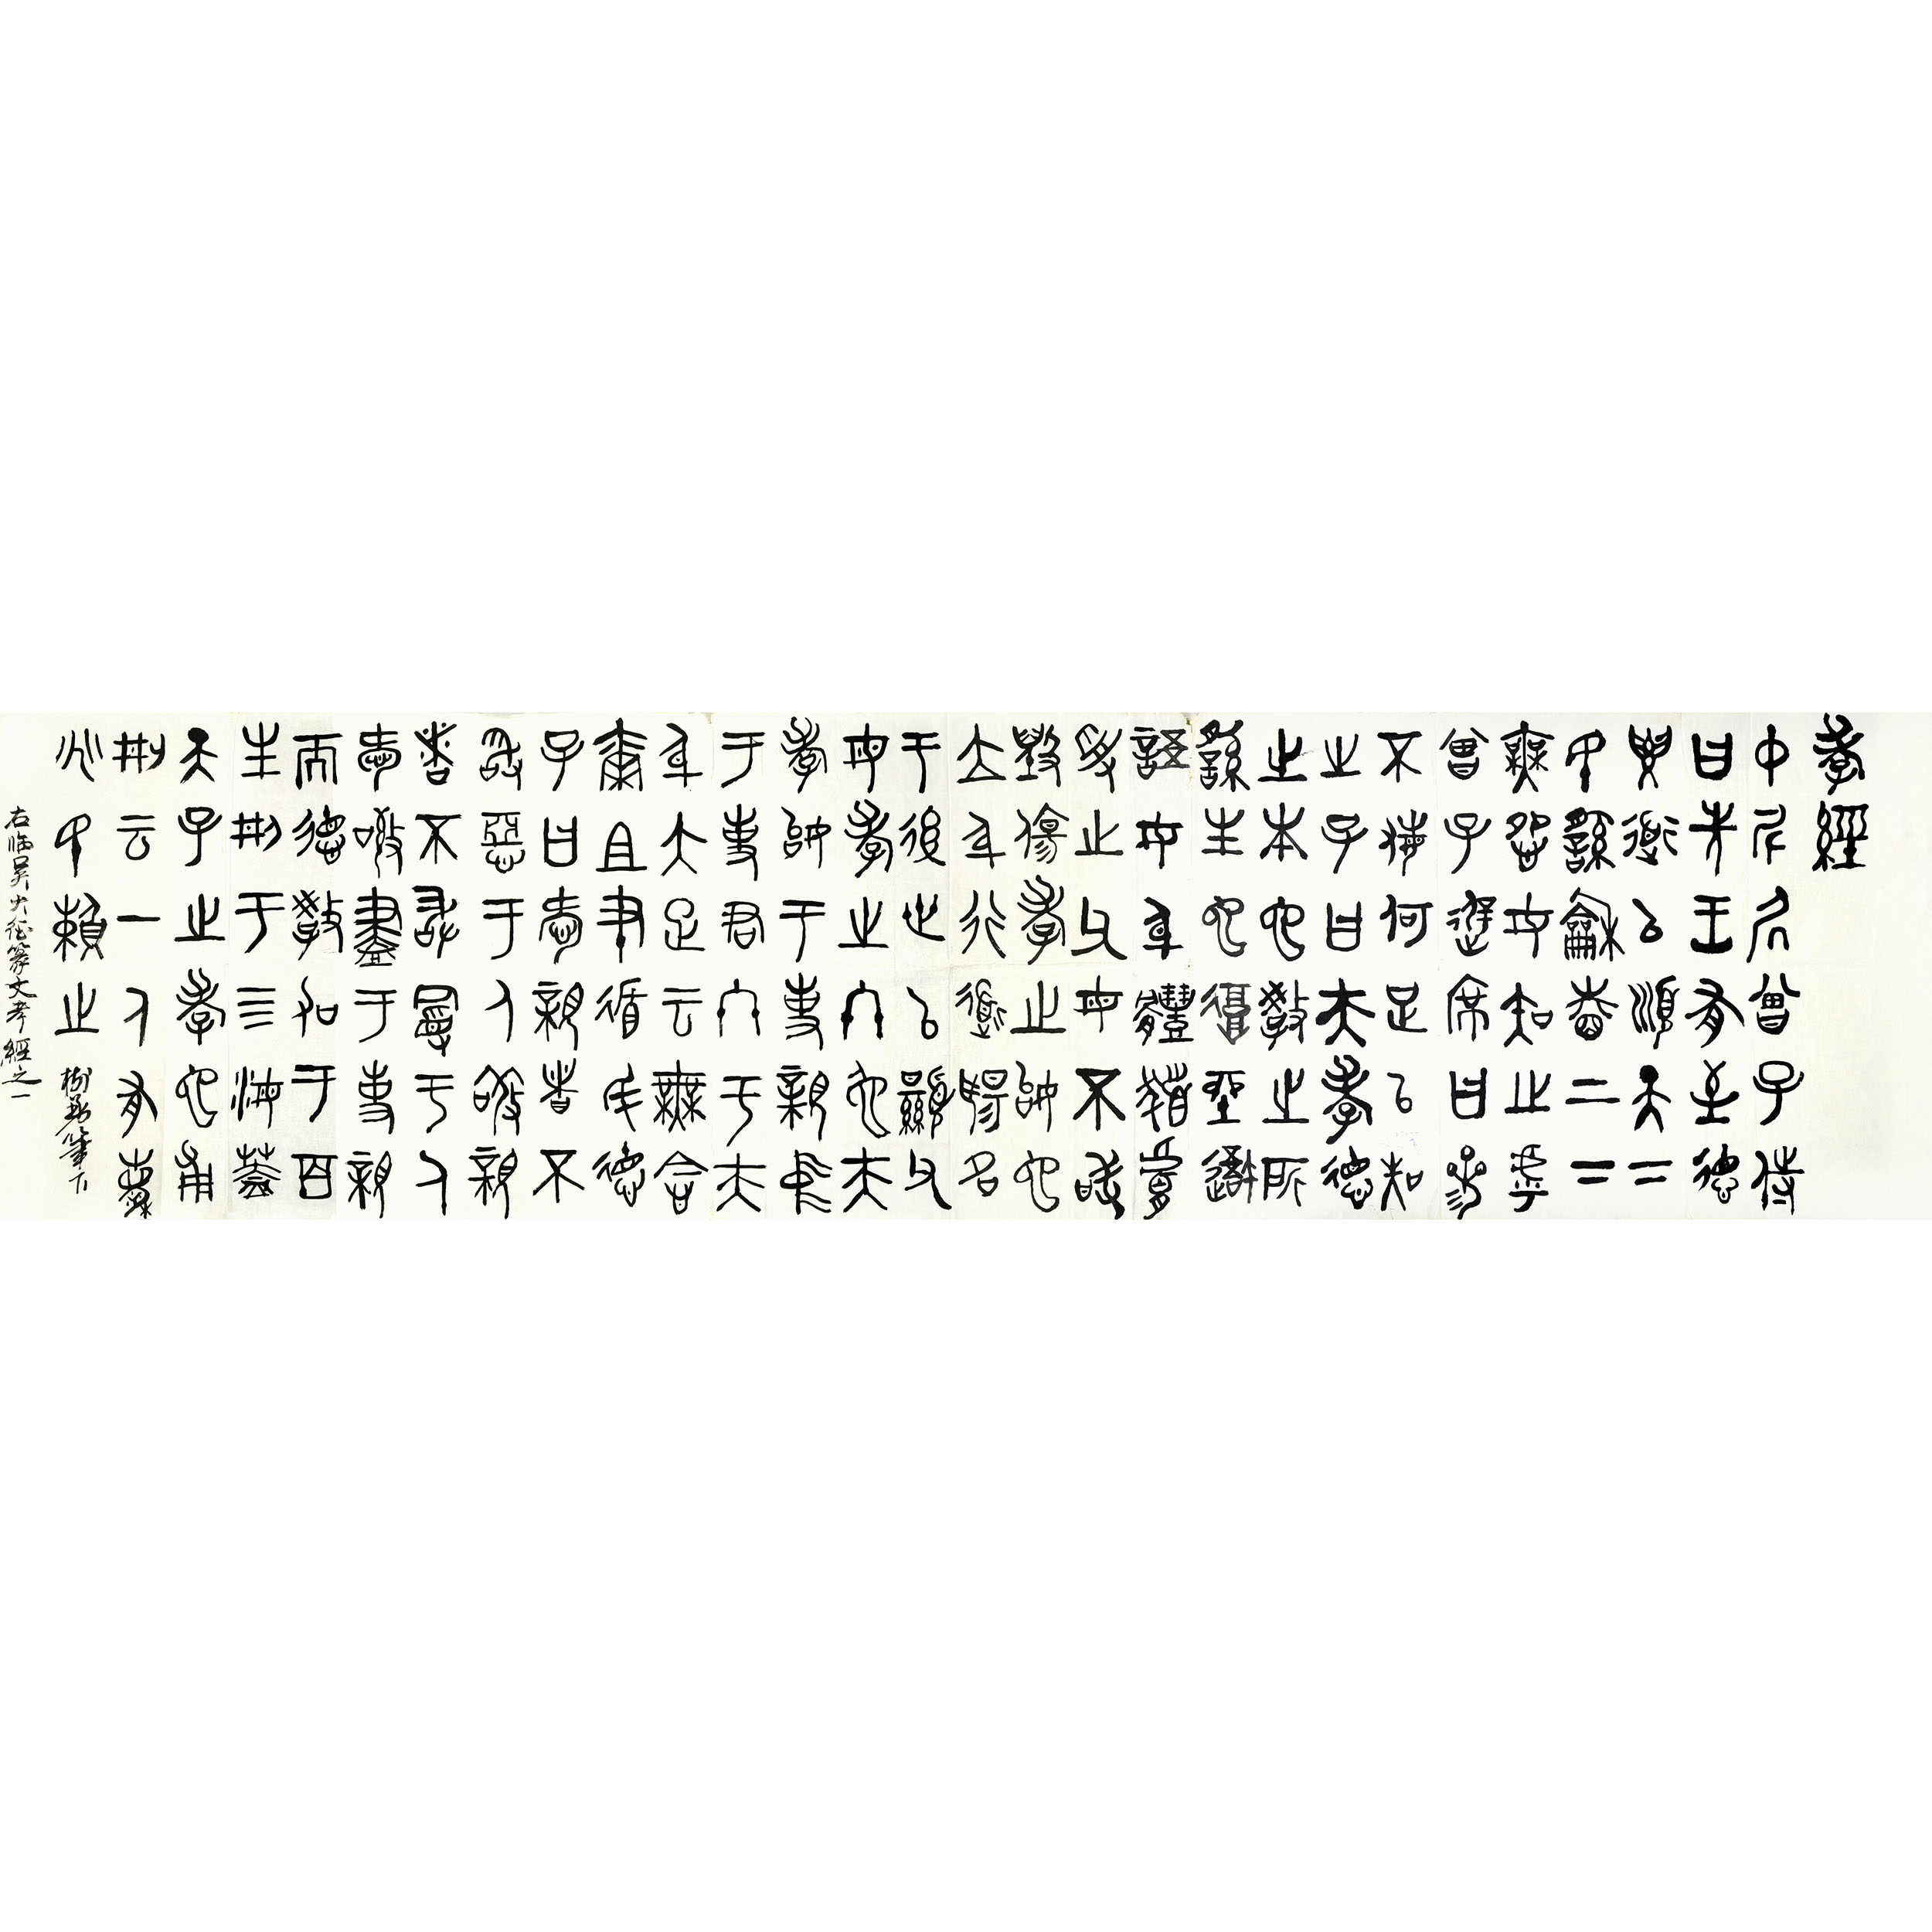 孝經
中尼凥曾子侍
曰先王有至德
要道以順天下
民繇龢睦上下
無怨女知之乎
曾子避席曰參
不敏何足以知
之子曰夫孝德
之本也教之所
繇生也復坐吾
語女身體髮膚
受之父母不敢
毀傷孝之始也
立身行道揚名
于後世以顯父
母孝之終也夫
孝始于事親中
于事君終于立
身大雅云無念
爾且聿循厥德
子曰愛親者不
敢惡于人敬親
者不敢慢于人
愛敬盡于事親
而德教加于百
生刑于四海蓋
天子之孝也甫
刑云一人有慶
兆民賴之
右臨吴大徵篆文孝經之一
樹筆下